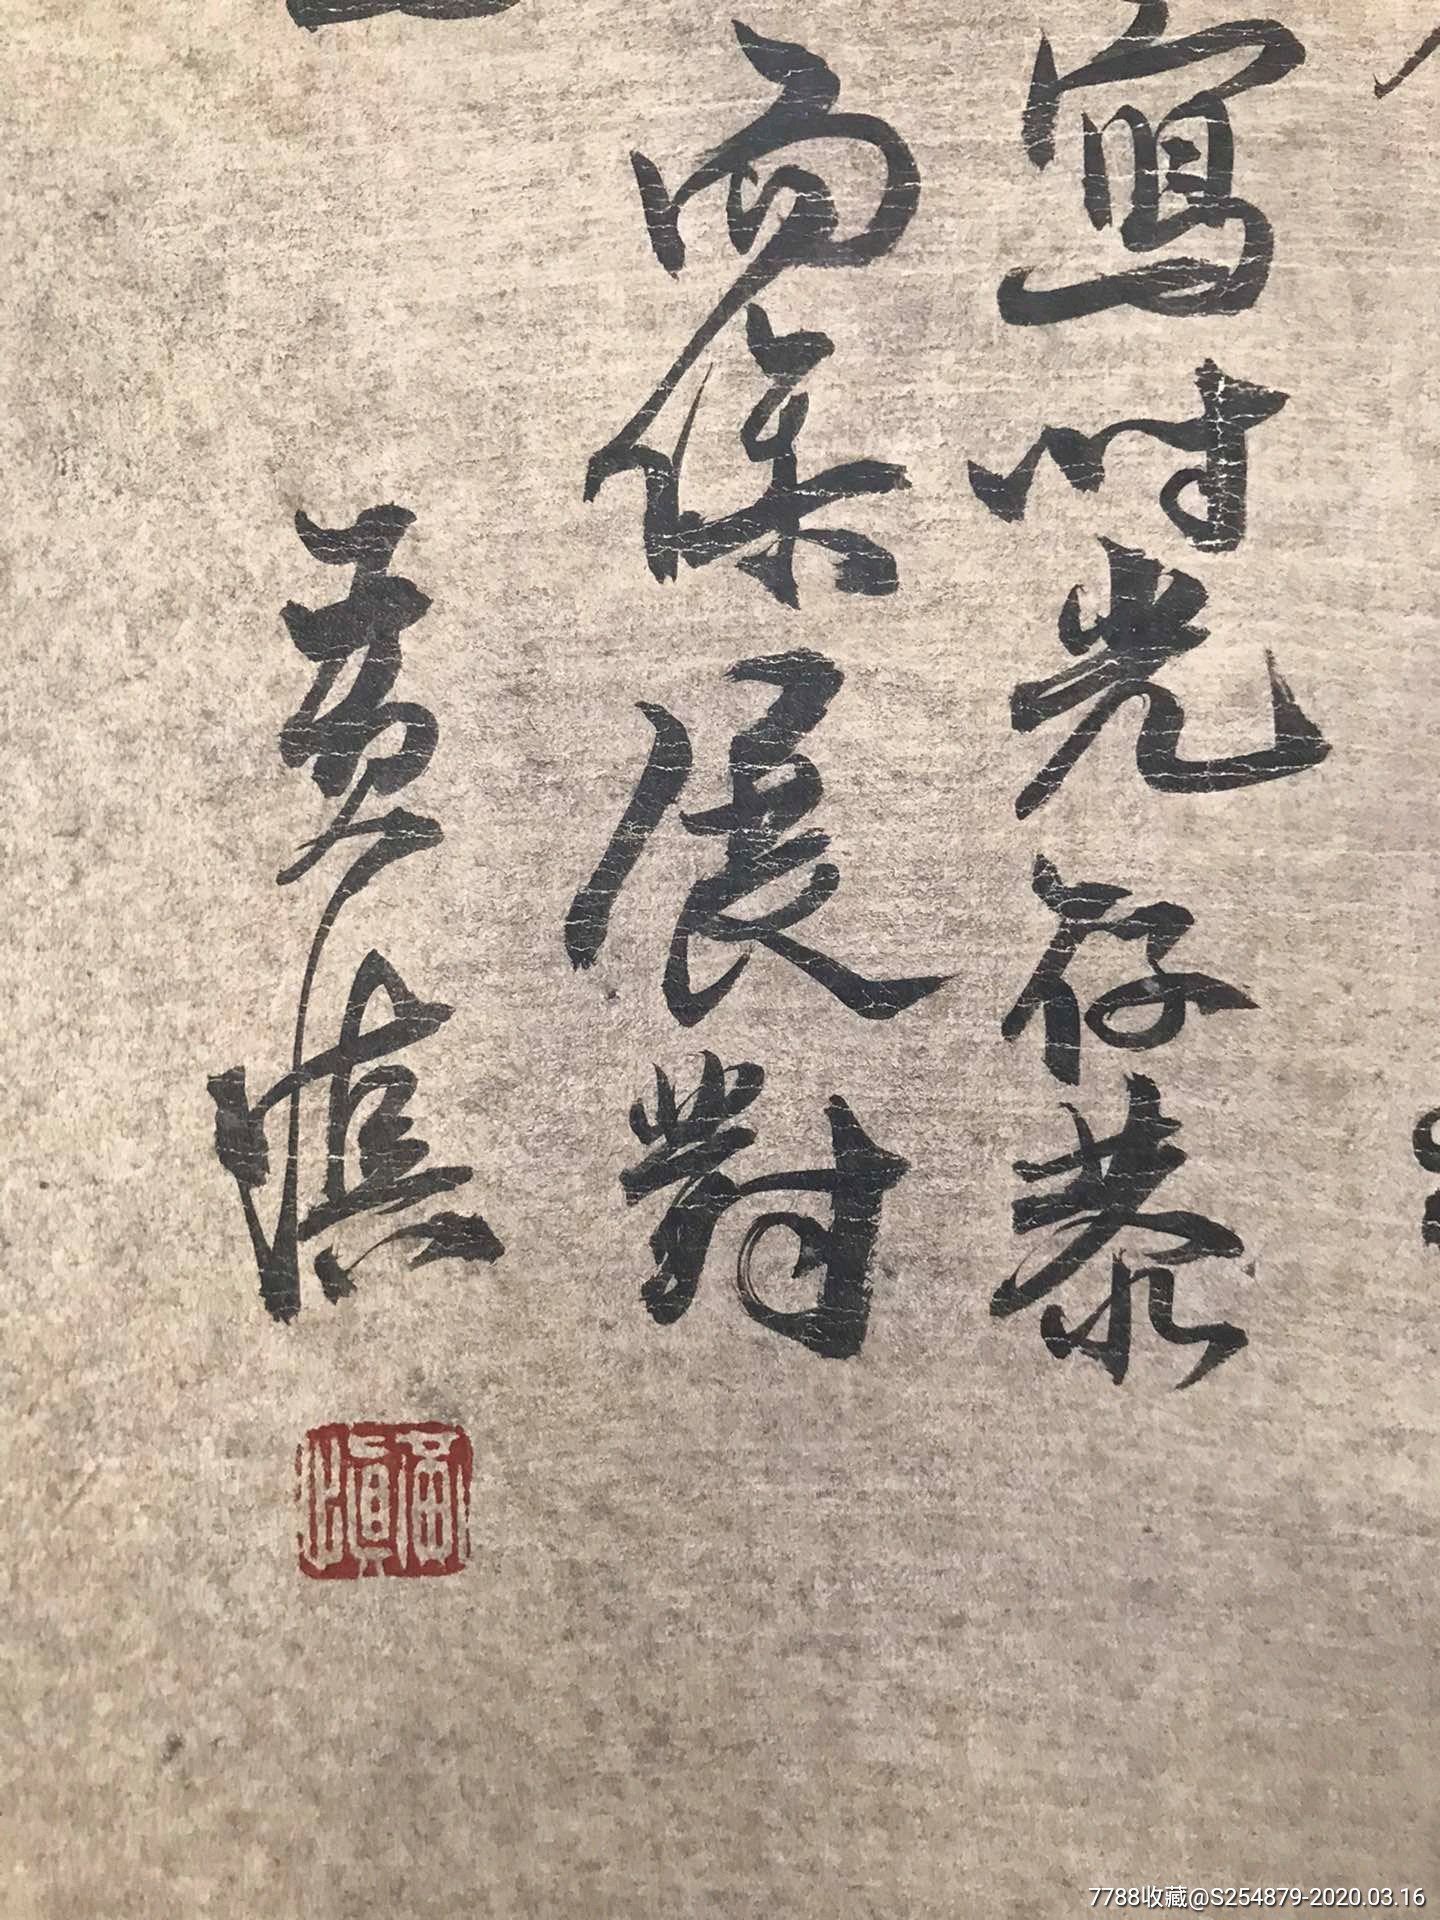 寫時光存恭
而保展對
黃慎
黃慎
7788收藏@S254879-2020.03.16